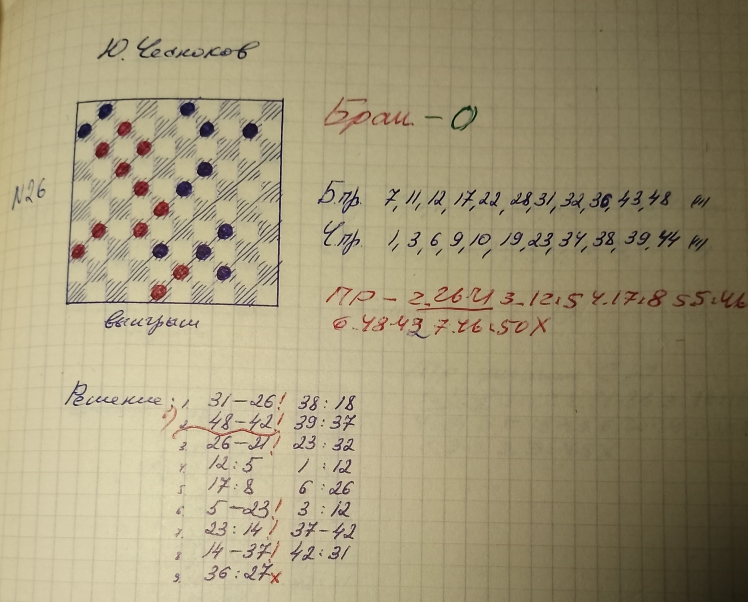 Ю. Чесноков
Брак - О
N26
Б пр. 7, 11, 12, 17, 22, 28, 31, 32, 36, 43, 48
Ч пр. 1, 3, 6, 9, 10, 19, 23, 34, 38, 39, 44
выигрыш
ПР - 2. 26-21 3. 12:5 4. 17:8 5 5:46
6. 48-42 7. 46:50X
Решение: 1. 31-26! 38:18
2. 48-42! 39:37
3. 26-21! 23:32
4. 12:5 1:12
5. 17:8 6:26
6. 5-23! 3:12
7. 23:14! 37-42
8. 14-37! 42:31
9. 36:27x